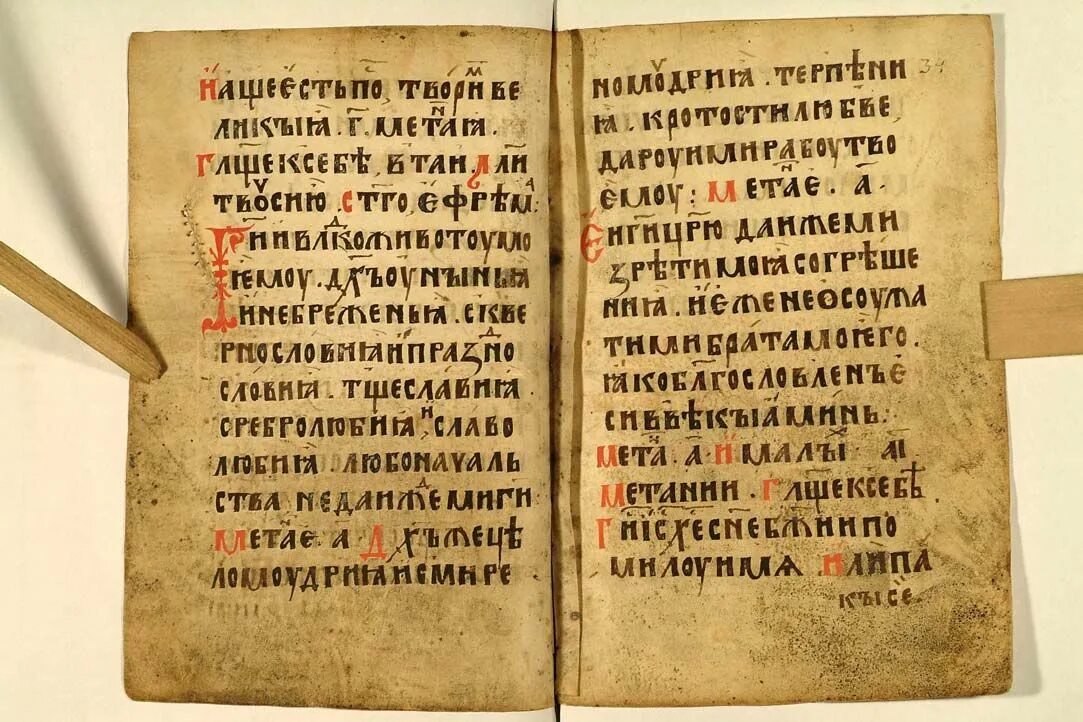 й аще єсть по, творим ве
ликыꙗ .г҃. метаниꙗ.
гл҃ще к себѣ, в таи. мл
твоу сию ст҃го єфрѣма:
Г҃и и влд҃ко животоу мо
ѥмоу. дх҃ъ оуныньꙗ
и небреженьꙗ. скве
рнословиꙗ и праздно
словиꙗ. тщеславиꙗ
сребролюбиꙗ, и славо
любиꙗ любоначаль
ства не даи же ми г҃и
метание. а҃ Дх҃ъ же цѣ
ломоудриꙗ и смире
номоудриꙗ. терпѣни
ꙗ. кротости любве,
дароуи ми рабоу тво
ємоу: метание. а҃.
Єи г҃и ц҃рю даи же ми
зрѣти моꙗ согрѣше
ниꙗ. и єже не ѳсоужа
ти ми брата моѥго.
ꙗко благословленъ є
си в вѣкы аминь.
мета. а҃ и малы. аі
метании. гл҃ще к себѣ.
Г҃и іс҃ хе с҃не бж҃ии по
милоуи мѧ или па
кы се
34